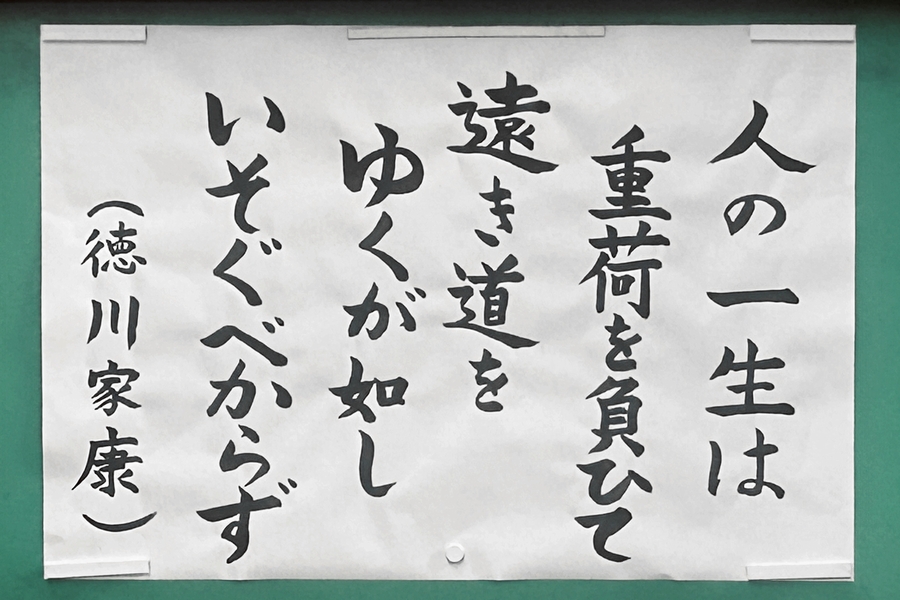 人の一生は
重荷を負ひて
遠き道を
ゆくが如し
いそぐべからず
（徳川家康）